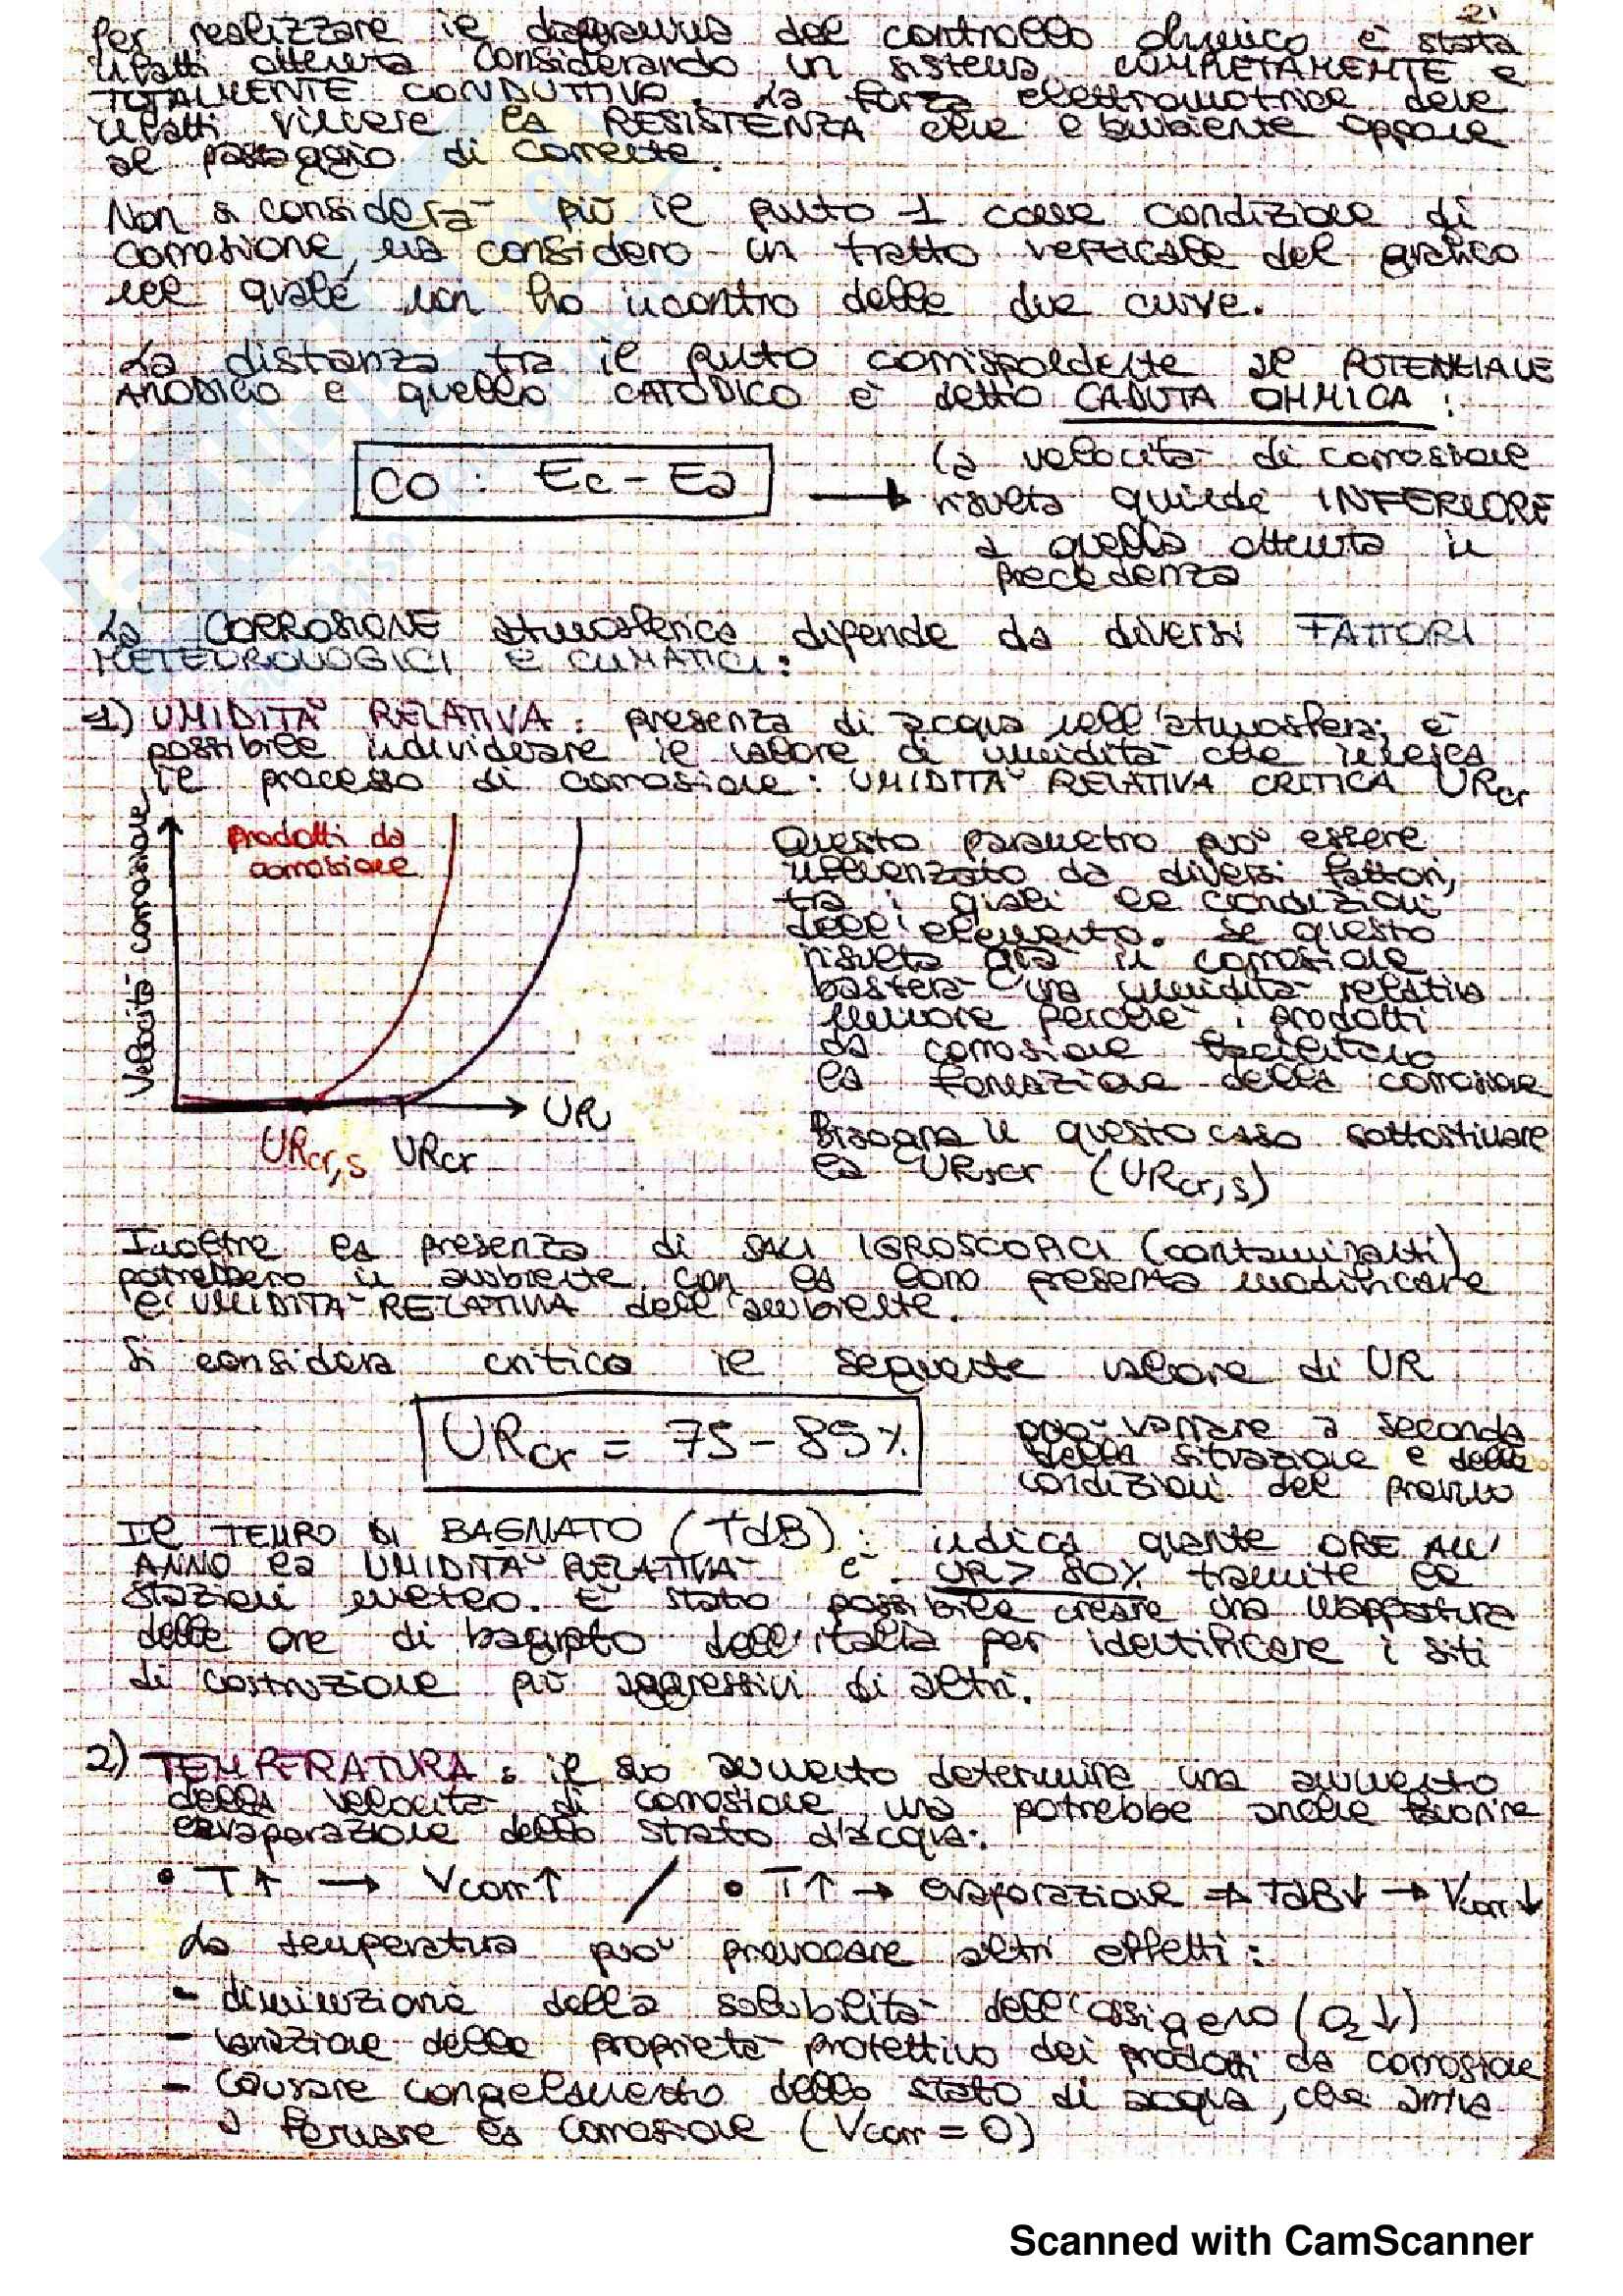 21
Per realizzare il diagramma del controllo ohmico è stata
infatti ottenuta considerando un sistema COMPLETAMENTE e
TOTALMENTE CONDUTTIVO. La forza elettromotrice deve
infatti vincere la RESISTENZA che l'ambiente oppone
al passaggio di corrente.
Non si considera più il punto 1 come condizione di
corrosione, ma considero un tratto verticale del grafico
nel quale non ho incontro delle due curve.
La distanza tra il punto corrispondente al POTENZIALE
ANODICO e quello CATODICO è detto CADUTA OHMICA:
CO: Ec - Ea
la velocità di corrosione
risulta quindi INFERIORE
a quella ottenuta in
precedenza
La CORROSIONE atmosferica dipende da diversi FATTORI
METEOROLOGICI E CLIMATICI:
1) UMIDITÀ RELATIVA: presenza di acqua nell'atmosfera; è
possibile individuare il valore di umidità che innesca
il processo di corrosione: UMIDITÀ RELATIVA CRITICA URcr
Velocità corrosione
prodotti da
corrosione
UR
URcr,s URcr
Questo parametro può essere
influenzato da diversi fattori,
tra i quali le condizioni
dell'elemento. Se questo
risulta già in corrosione
basterà una umidità relativa
minore perché i prodotti
da corrosione facilitano
la formazione della corrosione
Bisogna in questo caso sottostimare
la URcr (URcr,s)
Inoltre la presenza di SALI IGROSCOPICI (contaminanti)
potrebbero in ambiente con la loro presenza modificare
l'UMIDITÀ RELATIVA dell'ambiente.
Si considera critico il seguente valore di UR
URcr = 75 - 85%
può variare a seconda
della situazione e delle
condizioni del provino
Il TEMPO DI BAGNATO (TdB): indica quante ORE ALL'
ANNO la UMIDITÀ RELATIVA è UR > 80% tramite le
stazioni meteo. È stato possibile creare una mappatura
delle ore di bagnato dell'italia per identificare i siti
di costruzione più aggressivi di altri.
2) TEMPERATURA: il suo aumento determina una aumento
della velocità di corrosione, ma potrebbe anche favorire
evaporazione dello strato d'acqua:
• T↑ → Vcorr↑ / • T↑ → evaporazione ⇒ TdB↓ → Vcorr↓
La temperatura può provocare altri effetti:
- diminuzione della solubilità dell'ossigeno (O2↓)
- variazione delle proprietà protettivo dei prodotti da corrosione
- Causare congelamento dello stato di acqua, che arriva
a fermare la corrosione (Vcorr = 0)
Scanned with CamScanner